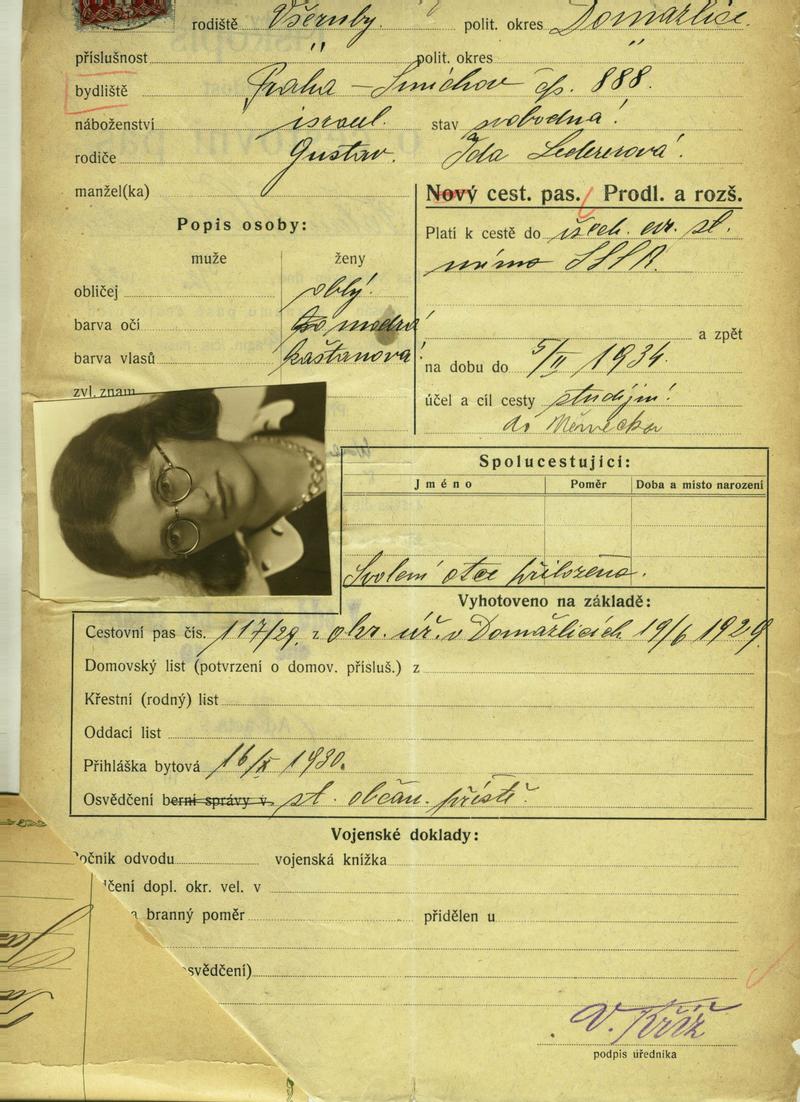 rodiště Všeruby. polit. okres Domažlice.
příslušnost " polit. okres "
bydliště Praha – Smíchov čp. 888.
náboženství israel. stav svobodná.
rodiče Gustav. Ida Ledererová.
manžel(ka)
Nový cest. pas. Prodl. a rozš.
Popis osoby:
muže ženy
obličej oblý.
barva očí modrá
barva vlasů kaštanová
zvl. znam
Platí k cestě do všech evr. st.
mimo SSSR.
a zpět
na dobu do 5/II 1934.
účel a cíl cesty studijní
do Německa
Spolucestující:
Jméno Poměr Doba a místo narození
Svolení otce přiloženo.
Vyhotoveno na základě:
Cestovní pas čís. 117/29 z okr. úř. v Domažlicích 19/6 1929.
Domovský list (potvrzení o domov. přísluš.) z
Křestní (rodný) list
Oddací list
Přihláška bytová 16/X 1930.
Osvědčení berní správy v. st. občan. příště.
Vojenské doklady:
Ročník odvodu vojenská knížka
dčení dopl. okr. vel. v
a branný poměr přidělen u
osvědčení)
V. Kříž
podpis úředníka